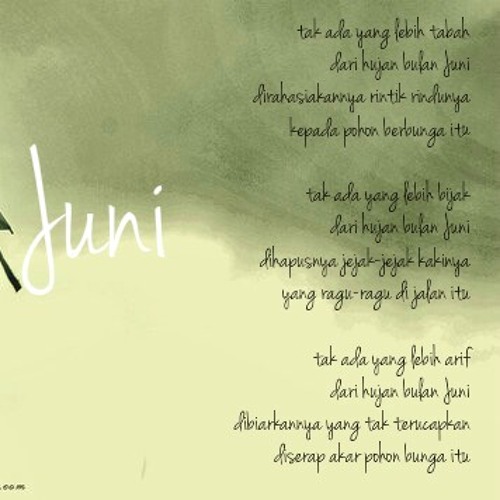 tak ada yang lebih tabah
dari hujan bulan Juni
dirahasiakannya rintik rindunya
kepada pohon berbunga itu
tak ada yang lebih bijak
dari hujan bulan Juni
dihapusnya jejak-jejak kakinya
yang ragu-ragu di jalan itu
tak ada yang lebih arif
dari hujan bulan Juni
dibiarkannya yang tak terucapkan
diserap akar pohon bunga itu
Juni
.com